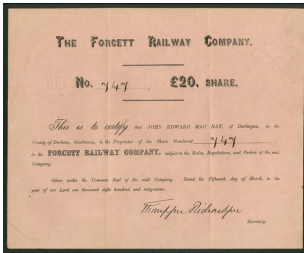 THE FORCETT RAILWAY COMPANY.
No. 747 £20. SHARE.
This is to certify that JOHN EDWARD MAC NAY, of Darlington, in the
County of Durham, Gentleman, is the Proprietor of the Share Numbered 747
in the FORCETT RAILWAY COMPANY, subject to the Rules, Regulations, and Orders of the said
Company.
Given under the Common Seal of the said Company. Dated the Fifteenth day of March, in the
year of our Lord one thousand eight hundred and sixty-seven.
Thompson Richardson
Secretary.